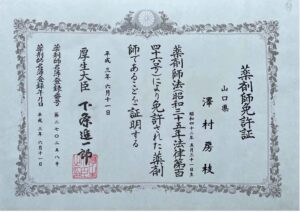 薬剤師免許証
山口県
澤村房枝
昭和四十二年五月三十一日生
薬剤師法(昭和三十五年法律第百
四十六号)により免許された薬剤
師であることを証明する
平成三年六月十一日
厚生大臣 下条進一郎
薬剤師名簿登録番号
薬剤師名簿登録年月日 平成三年六月十一日